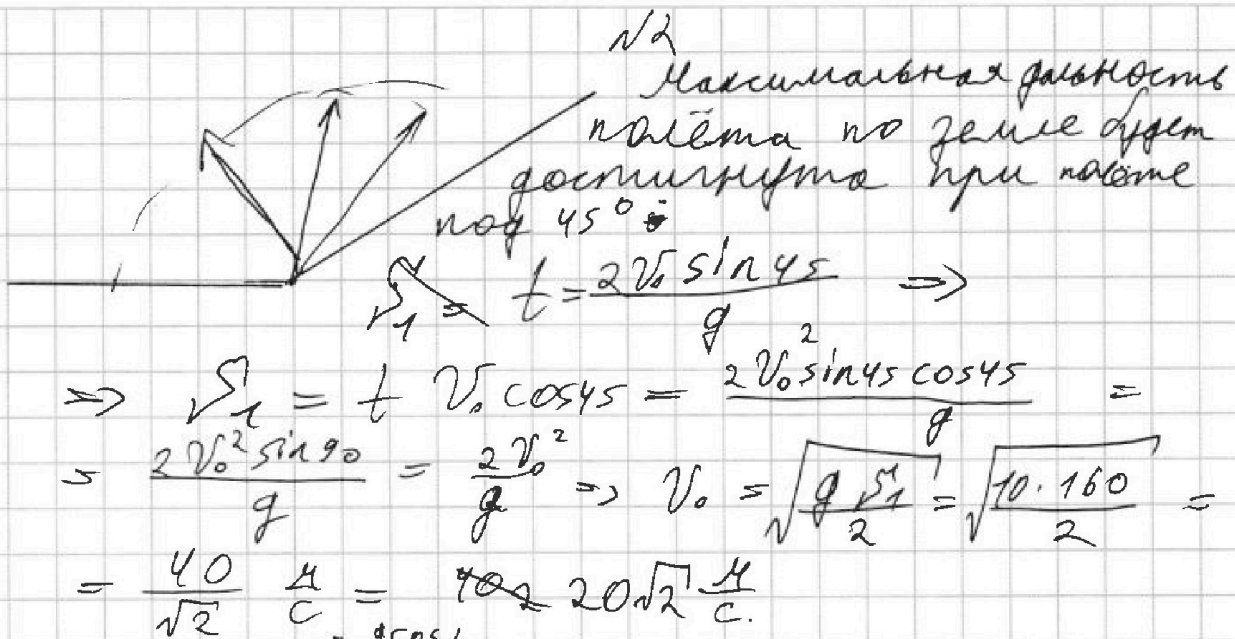 √2
Максимальная дальность
полёта по земле будет
достигнута при полёте
под 45°
S₁ = t = 2V₀ sin45 / g =>
=> S₁ = t V₀ cos45 = 2V₀² sin45 cos45 / g =
= 2V₀² sin90 / g = 2V₀² / g => V₀ = √(g S₁ / 2) = √(10·160 / 2) =
= 40 / √2 м/с = 20√2 м/с.